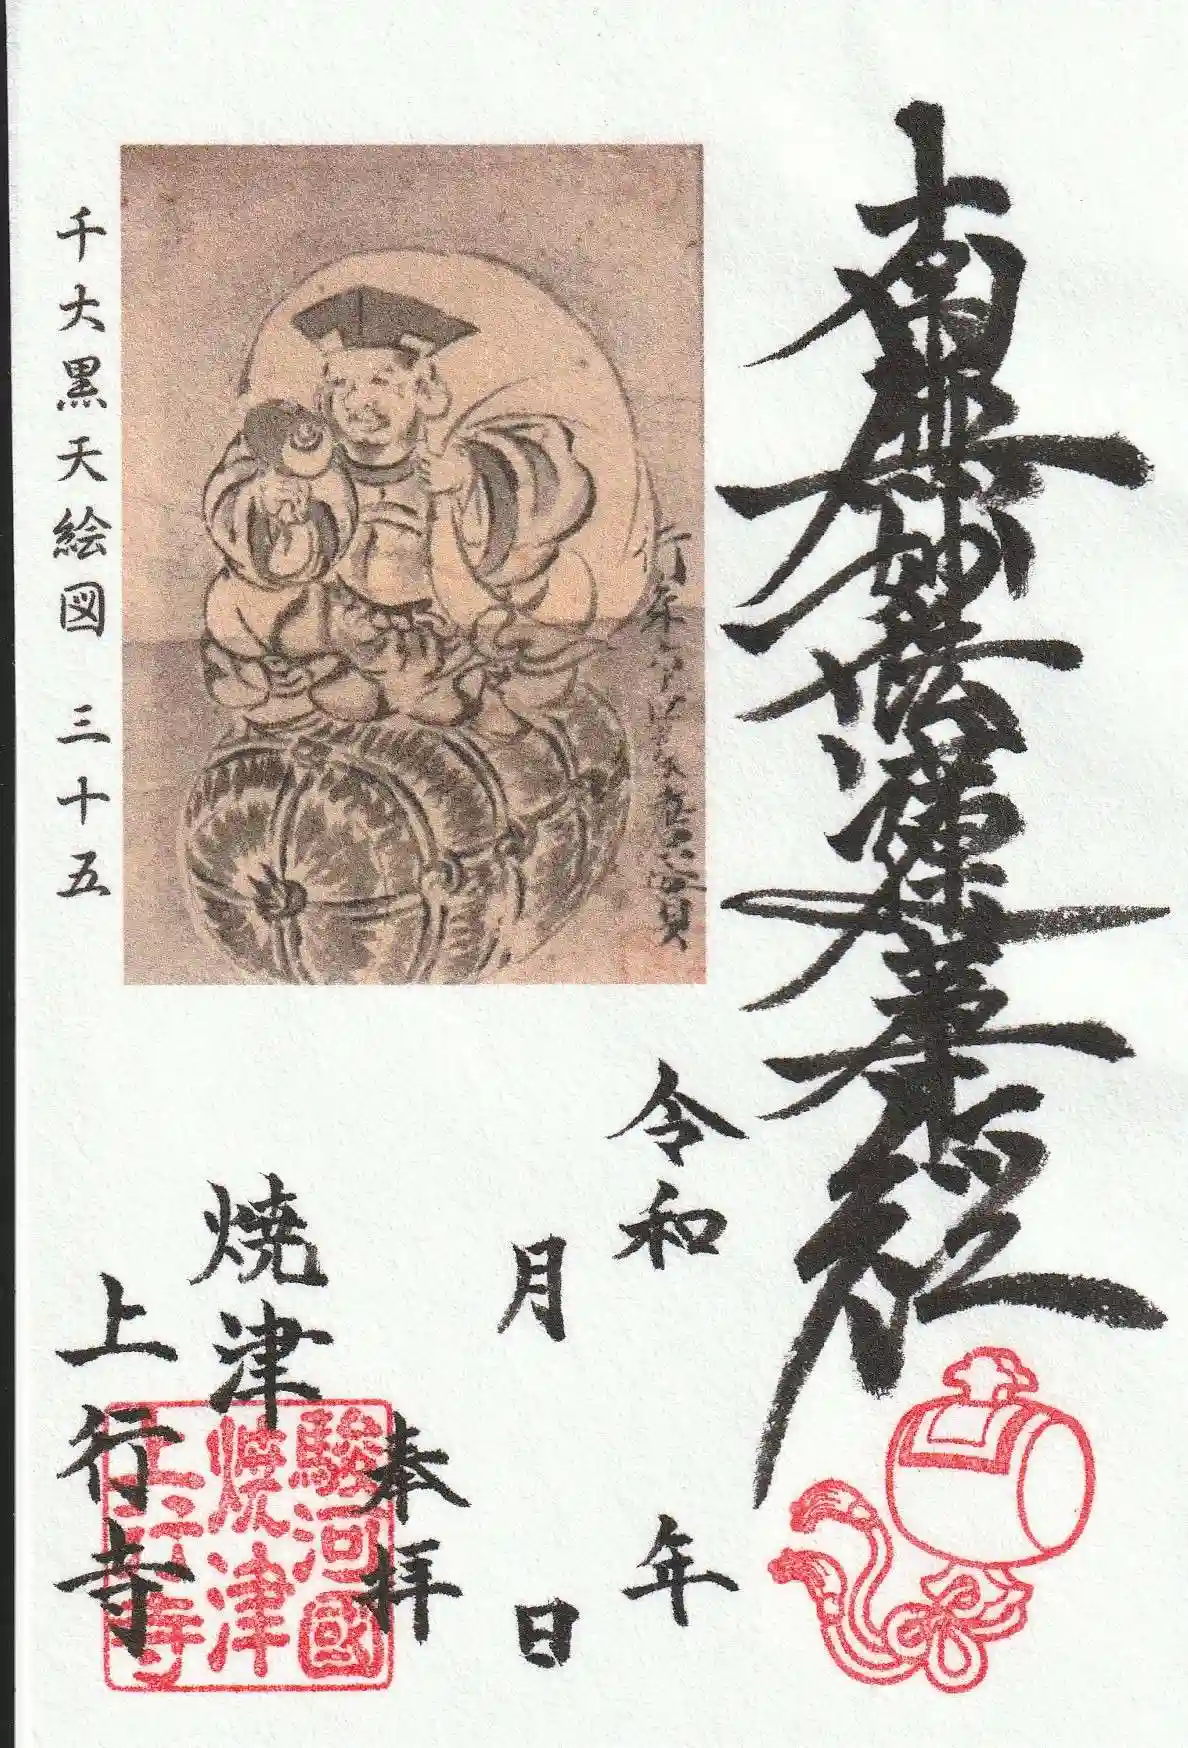 南無妙法蓮華経
千大黒天絵図 三十五
令和 年
月 日
奉拝
焼津
上行寺
駿河國
焼津
上行寺